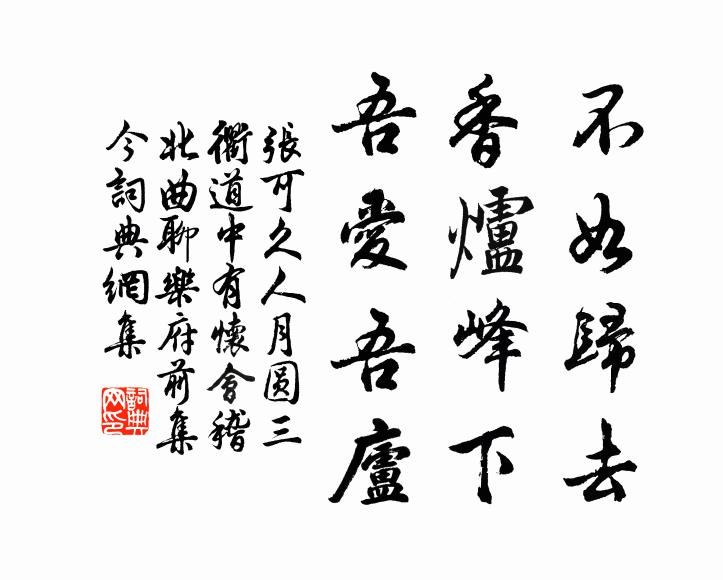 不如歸去
香爐峰下
吾愛吾廬
張可久人月圆三
衢道中有懷會稽
北曲聊樂府前集
今詞典網集
詞典
网印